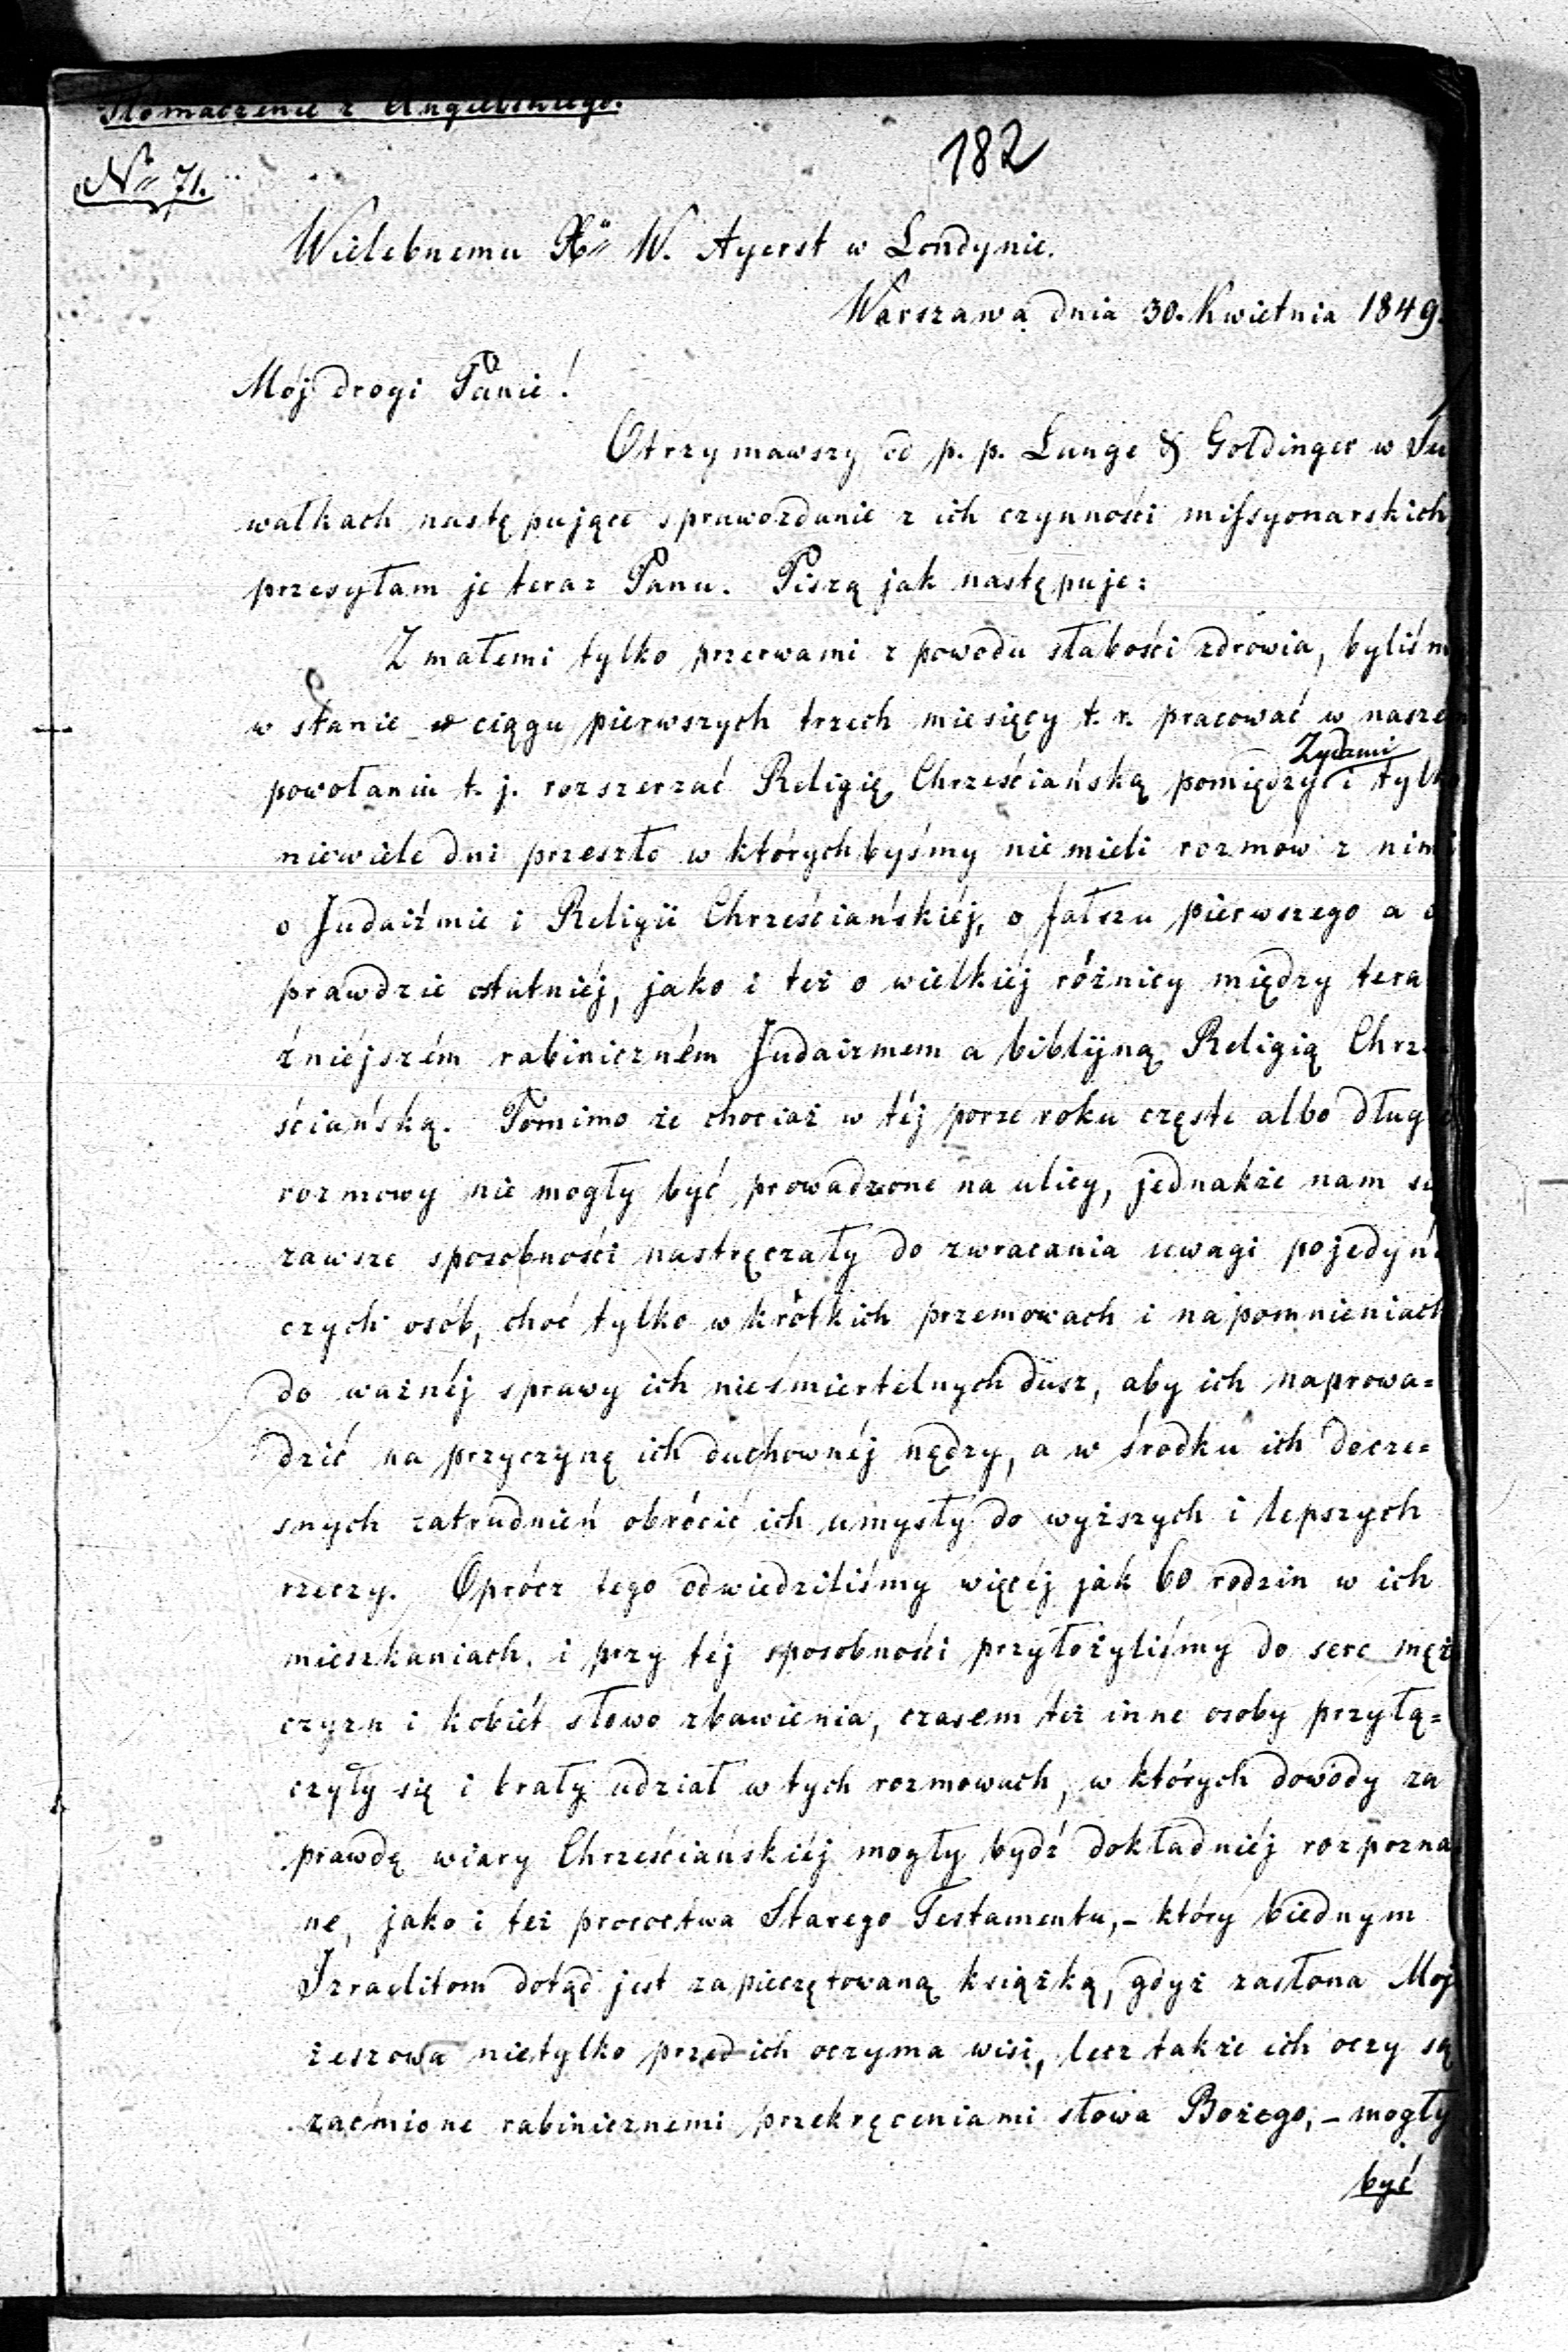 Tłomaczenie z Angielskiego.
182
№ 71.
Wielebnemu X" W. Ayerst w Londynie.
Warszawa dnia 30. Kwietnia 1849.
Mój drogi Panie!
Otrzymawszy od p. p. Lange & Goldinger w Su
wałkach następujące sprawozdanie z ich czynności missyonarskich,
przesyłam je teraz Panu. Piszą jak następuje:
Z małemi tylko przerwami z powodu słabości zdrowia, byliśm
w stanie w ciągu pierwszych trzech miesięcy t. r. pracować w nasze
Żydami
powołaniu t. j. rozszerzać Religię Chrześciańską pomiędzy i tylk
niewiele dni przeszło w których byśmy nie mieli rozmów z nimi
o Judaiźmie i Religii Chrześciańskiéj, o fałszu pierwszego a o
prawdzie ostatniéj, jako i też o wielkiéj różnicy między tera
źniéjszém rabiniczném Judaizmem a biblijną Religią Chrze
ściańską. Pomimo że chociaż w téj porze roku częste albo długie
rozmowy nie mogły być prowadzone na ulicy, jednakże nam się
zawsze sposobności nastręczały do zwracania uwagi pojedyń
czych osób, choć tylko w krótkich przemowach i napomnieniach
do ważnéj sprawy ich nieśmiertelnych dusz, aby ich naprowa=
dzić na przyczynę ich duchownéj nędzy, a w środku ich docze=
snych zatrudnień obrócić ich umysły do wyższych i lepszych
rzeczy. Oprócz tego odwiedziliśmy więcéj jak 60 rodzin w ich
mieszkaniach, i przy téj sposobności przyłożyliśmy do serc męż
czyzn i kobiét słowo zbawienia, czasem też inne osoby przyłą=
czyły się i brały udział w tych rozmowach, w których dowody za
prawdę wiary Chrześciańskiéj mogły bydź dokładniéj rozpozna
ne, jako i też proroctwa Starego Testamentu, - który biednym
Izraelitom dotąd jest zapieczętowaną książką, gdyż zasłona Moj
żeszowa nietylko przed ich oczyma wisi, lecz także ich oczy są
zaćmione rabinicznemi przekręceniami słowa Bożego; - mogły
być